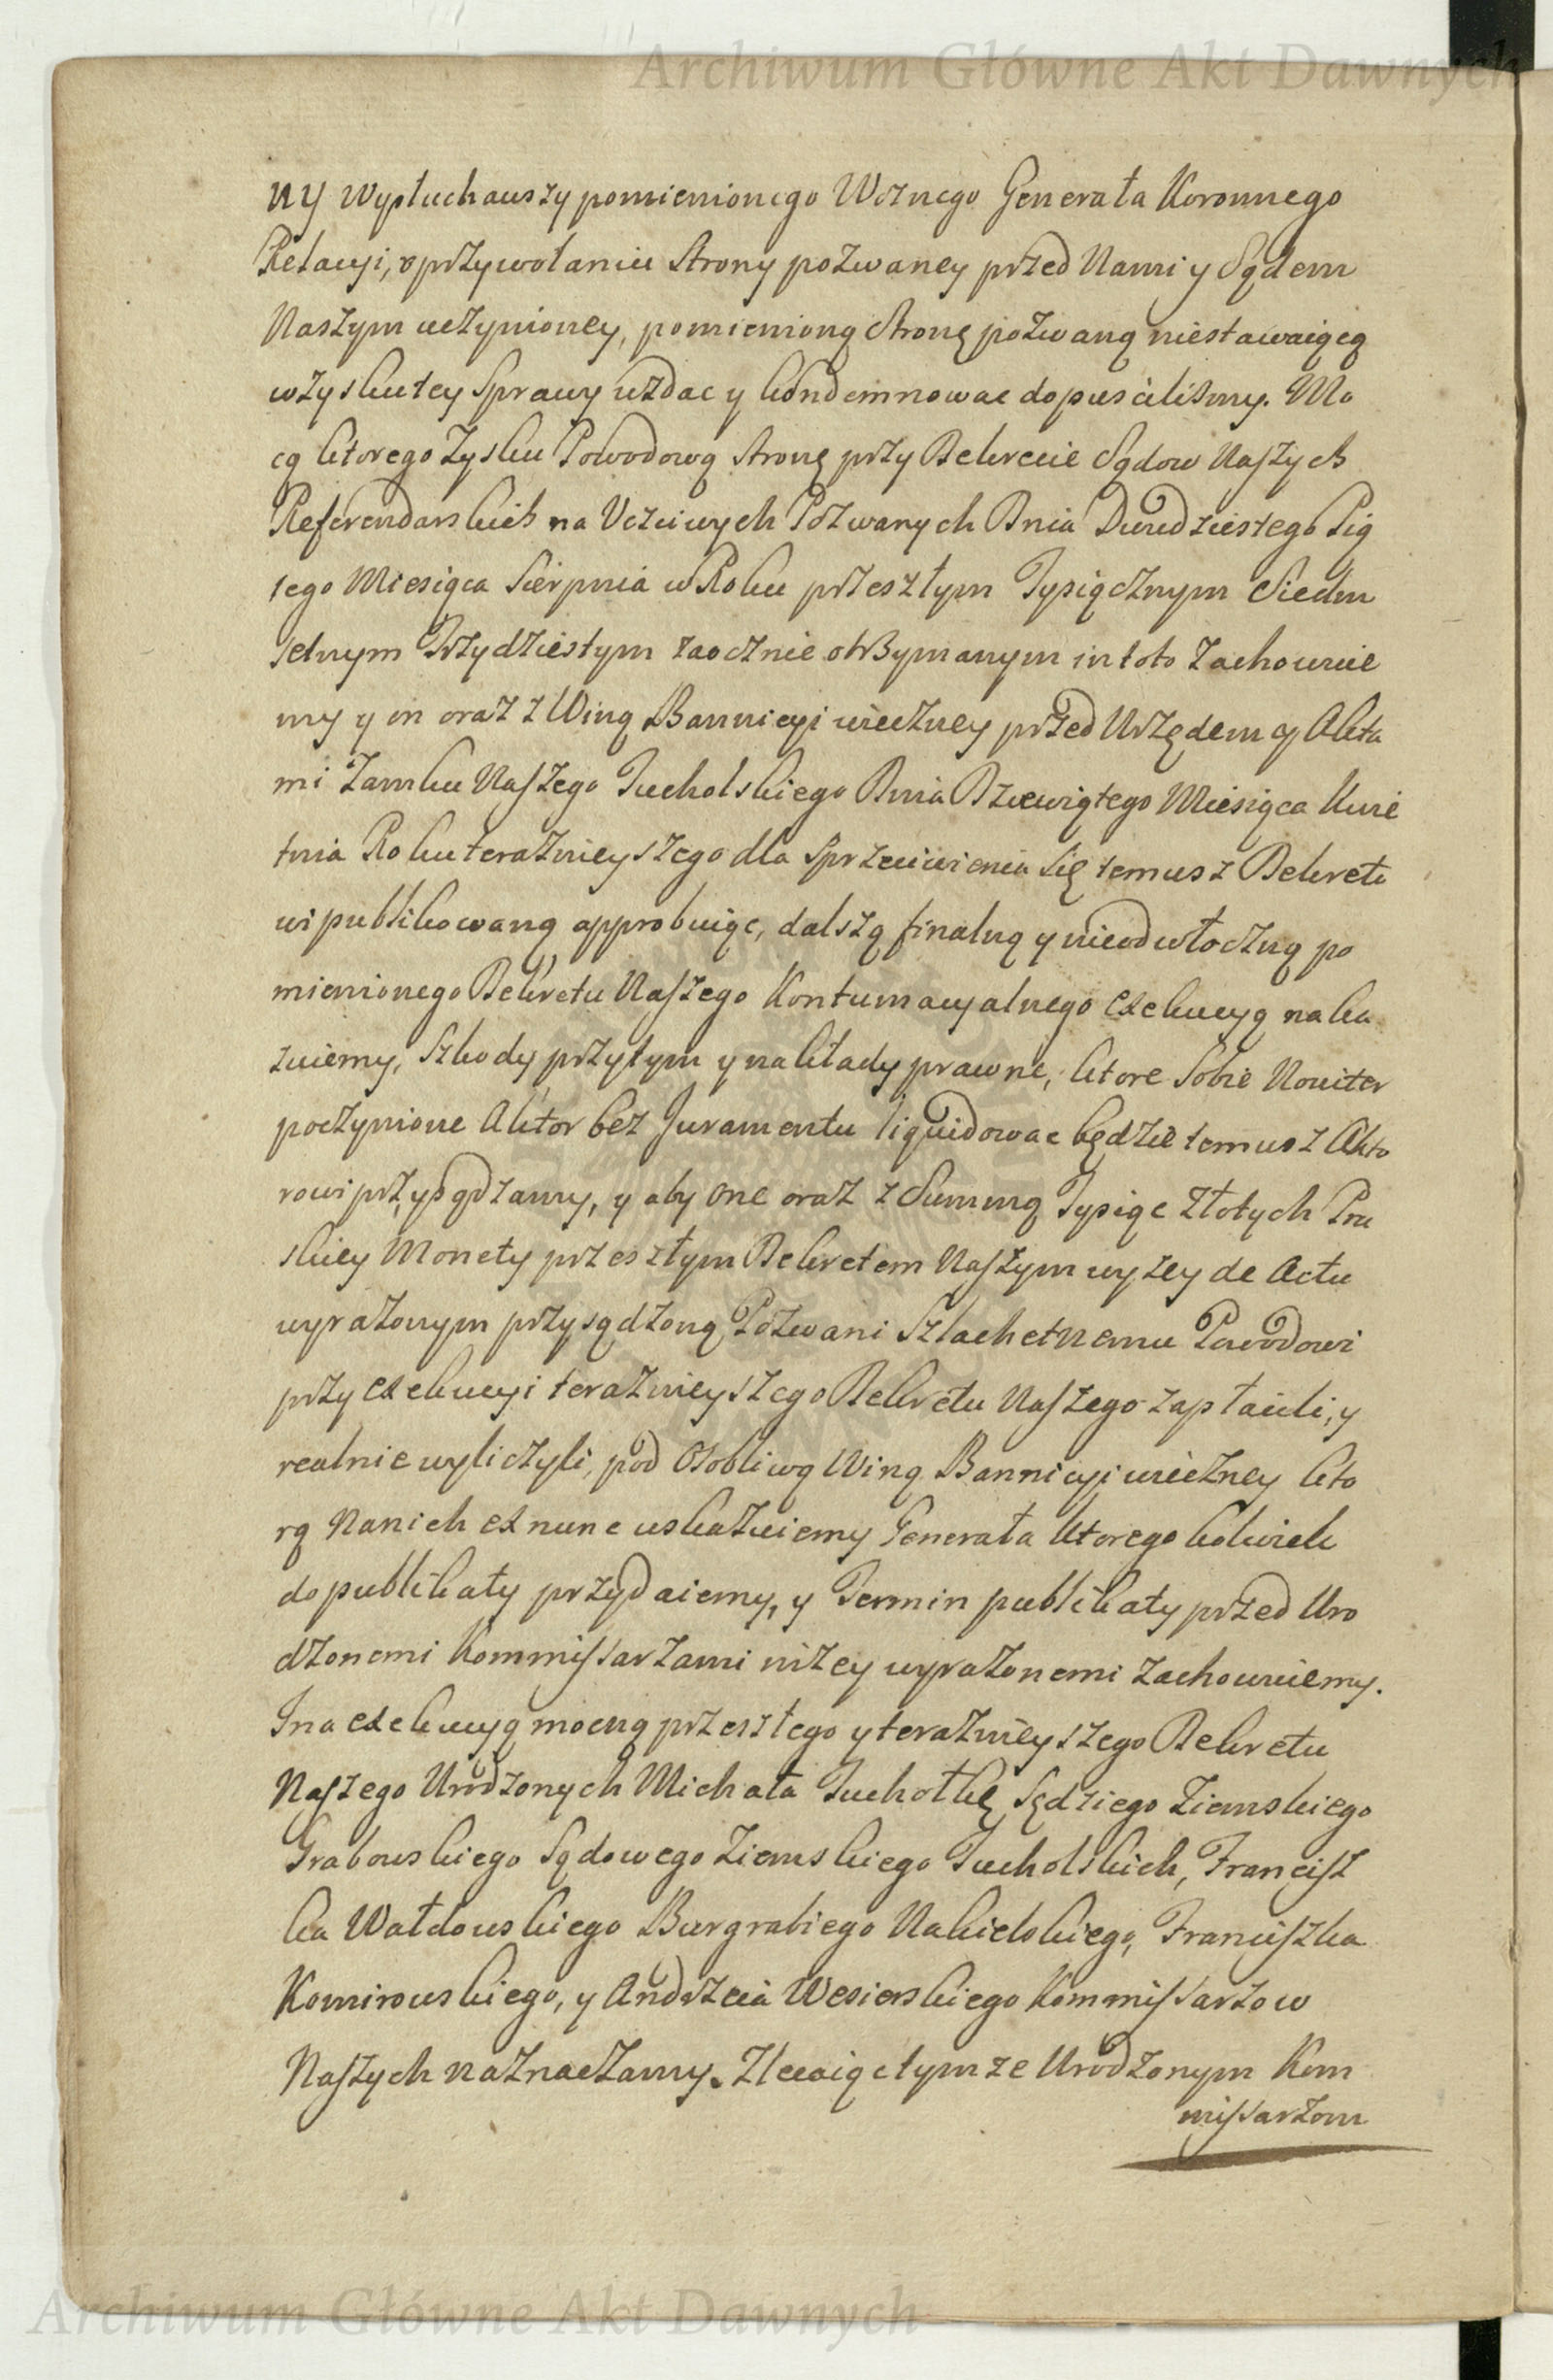 Archiwum Główne Akt Dawnych
ny Wysłuchauszy pomienionego Woznego Generała Koronnego
Relacyi, o przywołaniu Strony pozwaney przed Nami y Sądem
Naszym uczynioney, pomienioną Stronę pozwaną niestawaiącą
w zysku tey Sprawy wzdac y kondemnowac dopuscilismy. Mo
cą ktorego Zysku Powodową Stronę przy Dekrecie Sądow Naszych
Referendarskich na Uczciwych Pozwanych Dnia Dwudziestego Pią
tego Miesiąca Sierpnia w Roku przeszłym Tysiącznym Siedm
setnym Trzydziestym zaocznie otrzymanym in toto Zachowuie
my y on oraz z Winą Bannicyi wieczney przed Urzędem y Akta
mi Zamku Naszego Tucholskiego Dnia Dziewiątego Miesiąca Kwie
tnia Roku teraznieyszego dla Sprzeciwienia się temusz Dekreto
wi publikowaną approbuiąc, dalszą finalną y nieodwłoczną po
mienionego Dekretu Naszego Kontumacyalnego Exekucyą naka
zuiemy, Szkody przytym y nakłady prawne, ktore Sobie Noviter
poczynione Aktor bez Juramentu liquidowac będzie temusz Akto
rowi przysądzamy, y aby one oraz z Summą Tysiąc Złotych Pru
skiey Monety przeszłym Dekretem Naszym wyzey de Actu
wyrazonym przysądzoną, Pozwani Szlachetnemu Powodowi
przy exekucyi teraznieyszego Dekretu Naszego zapłacili, y
realnie wyliczyli, pod Osobliwą Winą Bannicyi wieczney kto
rą Nanich ex nunc wskazuiemy Generała ktorego kolwiek
do publikaty przydaiemy, y Termin publikaty przed Uro
dzonemi Kommissarzami nizey wyrazonemi Zachowuiemy.
Ina exekucyą mocną przeszłego y teraznieyszego Dekretu
Naszego Urodzonych Michała Tuchołkę Sędziego Ziemskiego
Grabowskiego Sądowego Ziemskiego Tucholskich, Francisz
ka Wałdowskiego Burgrabiego Nakielskiego, Franciszka
Komirowskiego, y Andrzeia Wesierskiego Kommissarzow
Naszych naznaczamy. Zlecaiąc tymze Urodzonym Kom
missarzom
Archiwum Główne Akt Dawnych